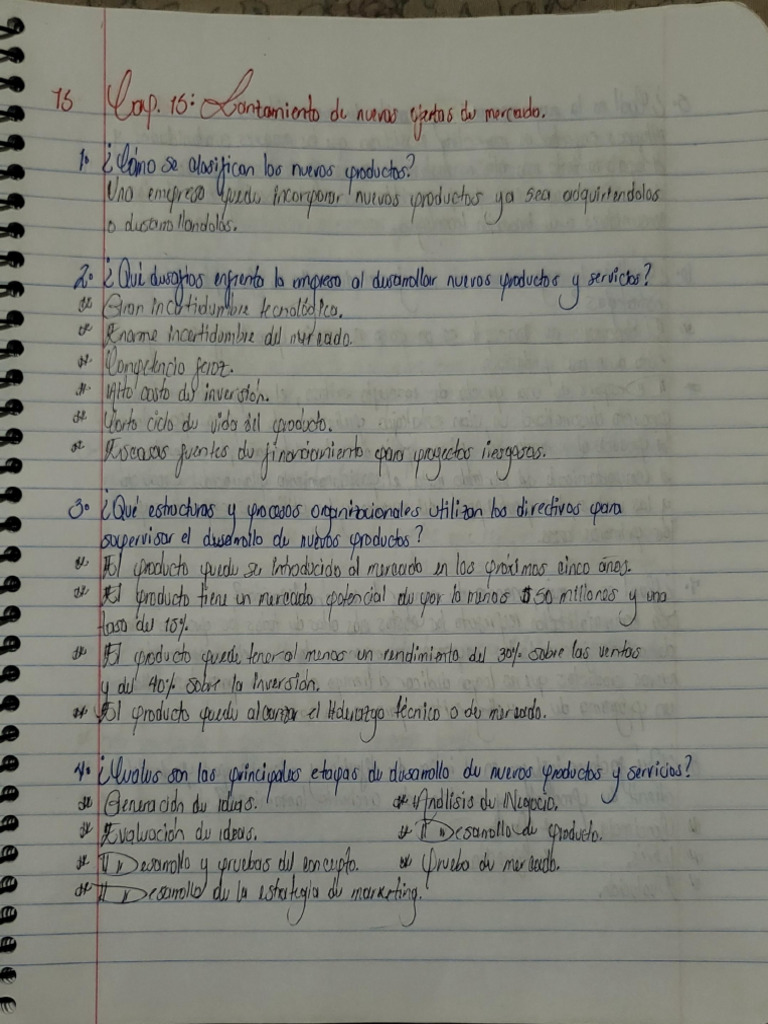 15 Cap. 15: Lanzamiento de nuevas ofertas de mercado.
1. ¿Cómo se clasifican los nuevos productos?
Una empresa puede incorporar nuevos productos ya sea adquiriendolos
o desarrollandolos.
2. ¿Qué desafios enfrenta la empresa al desarrollar nuevos productos y servicios?
* Gran incertidumbre tecnológica.
* Enorme incertidumbre del mercado.
* Competencia feroz.
* Alto costo de inversión.
* Corto ciclo de vida del producto.
* Escasas fuentes de financiamiento para proyectos riesgosos.
3. ¿Qué estructuras y procesos organizacionales utilizan los directivos para
supervisar el desarrollo de nuevos productos?
* El producto puede ser introducido al mercado en los próximos cinco años.
* El producto tiene un mercado potencial de por lo menos $50 millones y una
tasa del 15%
* El producto puede tener al menos un rendimiento del 30% sobre las ventas
y del 40% sobre la inversión.
* El producto puede alcanzar el liderazgo técnico o de mercado.
4. ¿Cuales son las principales etapas de desarrollo de nuevos productos y servicios?
* Generación de ideas. * Análisis de Negocio.
* Evaluación de ideas. * Desarrollo de producto.
* Desarrollo y pruebas del concepto. * Prueba de mercado.
* Desarrollo de la estrategia de marketing.